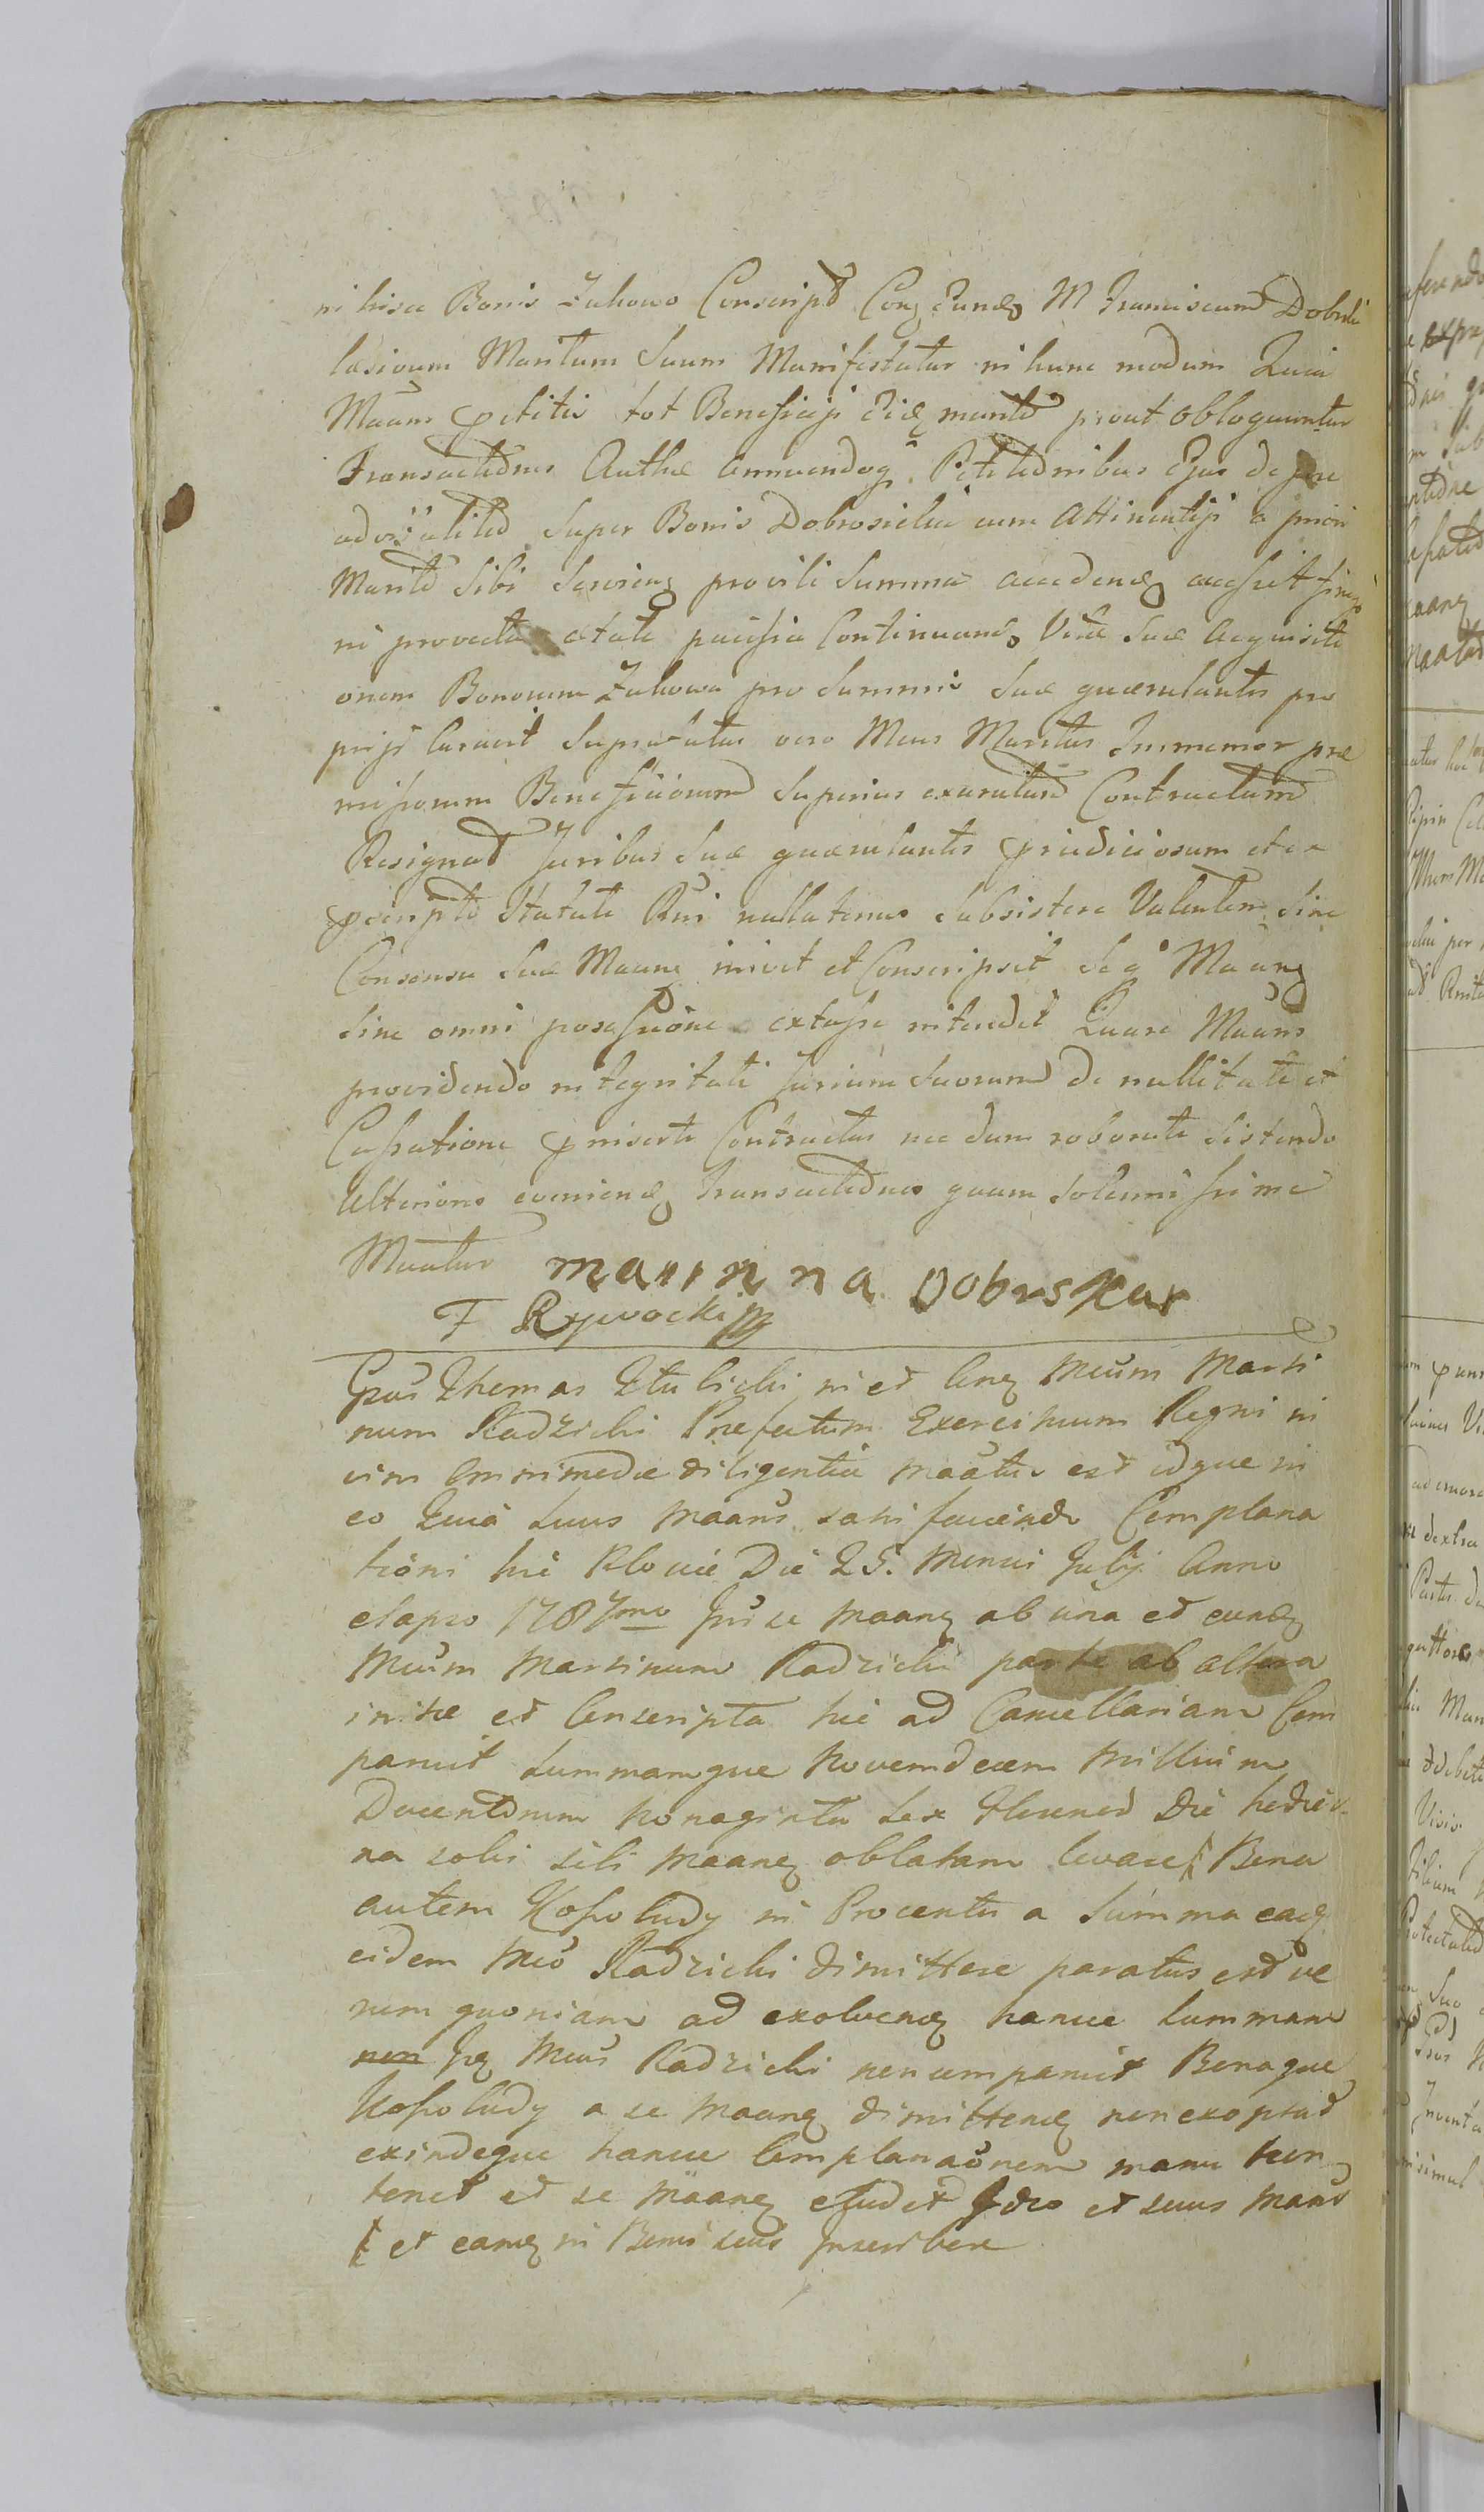 in hisce Bonis Żukowo Conscript Conz Eundz M Franciscum Dobrski
lasivum Maritum Suum Manifestatur in hunc modum Quia
Maans petitis tot Beneficijs Eidz marito prout obloquuntur
Transactiones Authae annuendoq Petitionibus Ejus de jure
advitalitio Super Bonis Dobrosielice cum Attinentijs a priori
Marito Sibi Servienz pro vili Summa accedendz accessit
in provecta aetate Continuand Vitae Suae Acquisiti
onem Bonorum Żukowa pro Summis Suae quaerulantis pro
prijs curavit Supradictus vero Mcus Maritus Immemor prae
missorum Beneficiorum Superius exaratum Contractum
Resignat Juribus Suae quaerulantis praeiudiciosum et ex
praescripto Statuti Rni nullatenus Subsistere Valentem Sine
Consensu Suae Maane inivit et Conscripsit Seq Maanz
Sine omni possessione extasse intendit Quare Maans
providendo integritati Jurium Suorum de nullitate et
Cassatione praeinserti Contractus nec dum roborati Sistendo
Ulterioris evenienz Transactiones quam Solennissime
Maatur marinna Dobrskar
F Rywocki mp
Gsus Thomas Stulicki in et Conz Mcum Marti
num Radzicki Praefectum Exercituum Regni in
vim Omnimodae diligentiae maatur est idque in
eo Quia Suus Maans satisfaciendo Complana
tioni hic Plociae Die 25. Mensis Julij Anno
elapso 1787mo Inse Maanz ab una et eundz
Mcum Martinum Radzicki parte ab altera
initae et Conscripta hic ad Cancellariam Com
paruit Summamque Novemdecem Millium
Ducentorum Nonaginta Sex Florenos Die hodier
na solvi sibi Maanz oblatam levare Bona
autem Kossobudy in Procentu a Summa eadz
eidem Mco Radzicki dimittere paratus est ve
rum quoniam ad exolvendz hance Summam
non Mcus Radzicki non comparuit Bonaque
Kossobudy a se Maanz dimittendz non exoptat
exindeque hance Complanaonem manu ten
tenet et se Maanz eludit Ideo et suus Maans
et eandz in Bonis suis Inscribere